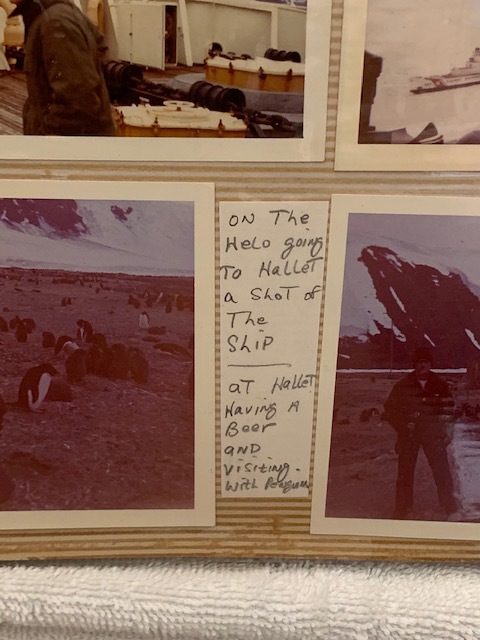 ON The
Helo going
To Hallet
a Shot of
The
Ship
aT Hallet
Having A
Beer
AND
visiting.
with Penguins